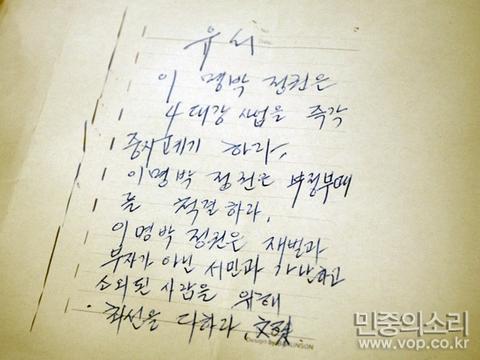 유서
이 명박 정권은
4대강 사업을 즉각
중지폐기 하라.
이명박 정권은 부정부패
를 척결하라.
이명박 정권은 재벌과
부자가 아닌 서민과 가난하고
소외된 사람을 위해
최선을 다하라 文殊
민중의소리
www.vop.co.kr